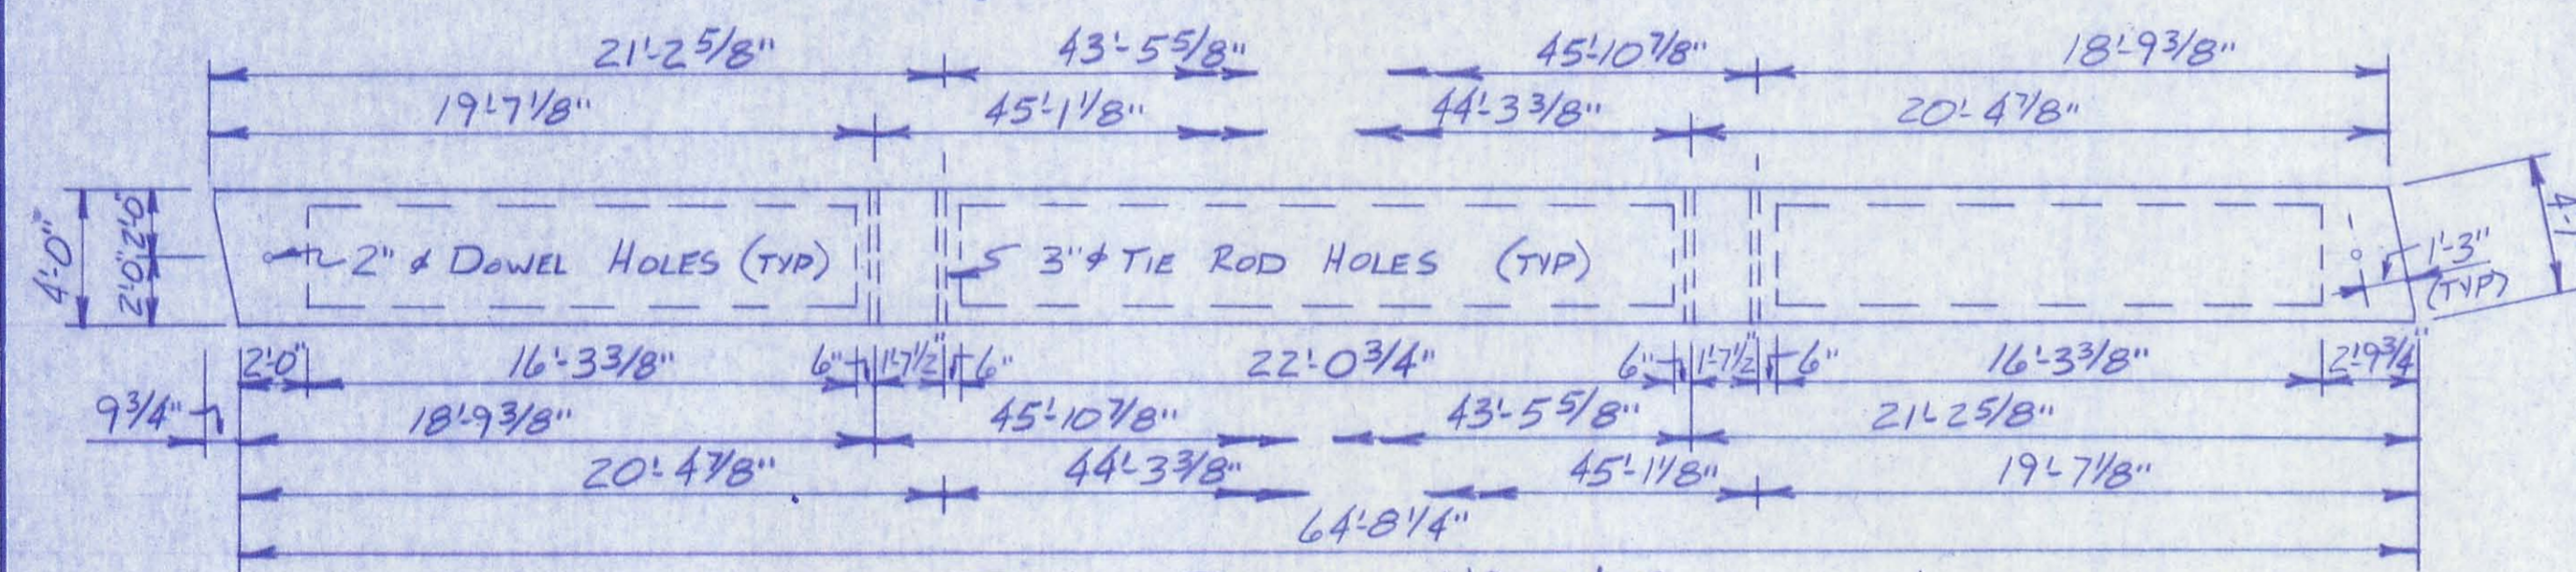 21'-2 5/8" 43'-5 5/8" 45'-10 7/8" 18'-9 3/8"
19'-7 1/8" 45'-1 1/8" 44'-3 3/8" 20'-4 7/8"
4'-0" 2'-0" 2'-0"
2" ϕ DOWEL HOLES (TYP) 3" ϕ TIE ROD HOLES (TYP)
1'-3"
(TYP)
2'-0" 16'-3 3/8" 6" 1'-7 1/2" 6" 22'-0 3/4" 6" 1'-7 1/2 6" 16'-3 3/8" 2'-9 3/4"
9 3/4" 18'-9 3/8" 45'-10 7/8" 43'-5 5/8" 21'-2 5/8"
20'-4 7/8" 44'-3 3/8" 45'-1 1/8" 19'-7 1/8"
64'-8 1/4"